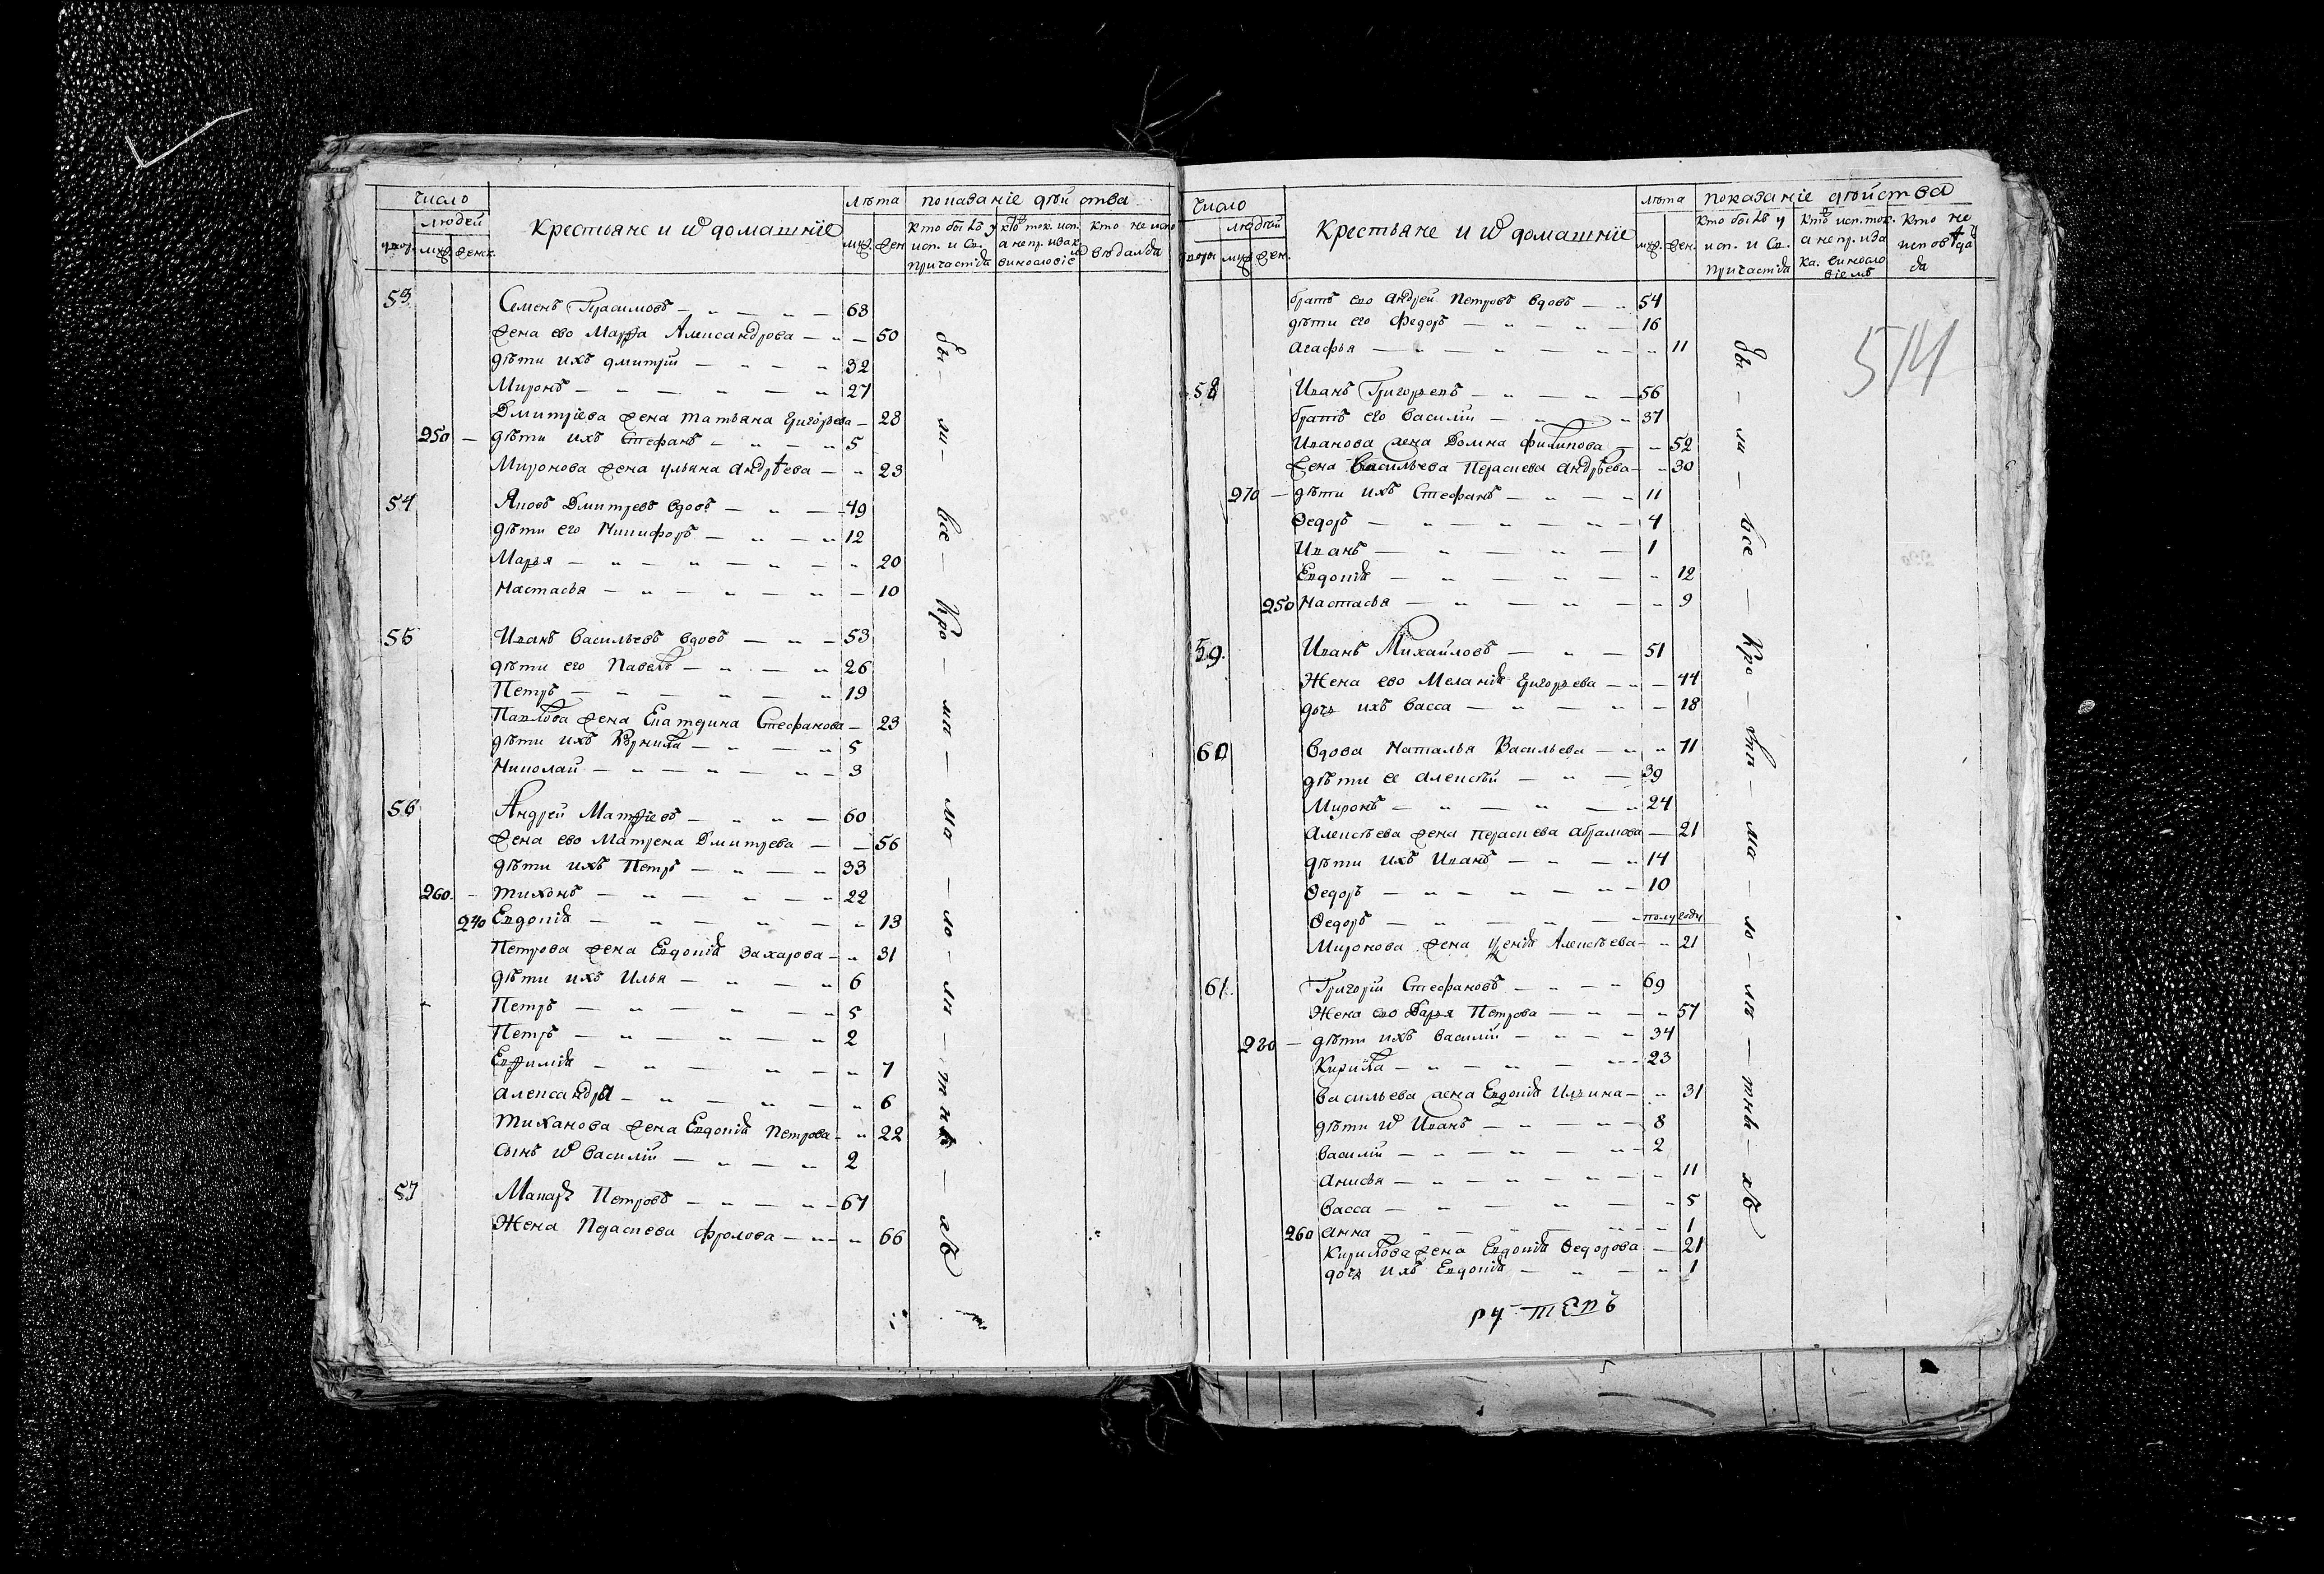 Число
людей
двор. муж. женск.
Крестьяне и ѿ домашніе
лѣта
муж. жен.
показаніе дѣй ства
Кто былъ у исп. и Св. причастїѧ
кто ток. исп. а не пр. и за к. винословіемъ
кто не испо вѣдалсѧ
53 Семенъ Герасимовъ — „ — „ — 63
жена ево Марѳа Александрова — „ — 50
дѣти ихъ Дмитрій — „ — „ 32
Миронъ — „ — „ — „ 27
Дмитріева жена Татьяна Григорьева — 28
250 — дѣти ихъ Стефанъ — „ — „ 5
Миронова жена Ульяна Андрѣева — „ 23
54 Яковъ Дмитревъ вдовъ — „ — 49
дѣти его Никифоръ — „ — „ 12
Марья — „ — „ — „ — „ 20
Настасья — „ — „ — „ — 10
55 Иванъ Васильевъ вдовъ — „ — 53
дѣти его Павелъ — „ — „ 26
Петръ — „ — „ — „ 19
Павлова жена Екатерина Стефанова — 23
дѣти ихъ Корнила — „ — „ 5
Николай — „ — „ — „ — 3
56 Андрей Матѳіевъ — „ — „ — 60
жена ево Матрена Дмитрева — — 56
дѣти ихъ Петръ — „ — „ 33
260 — Тихонъ — „ — „ — „ 22
240 Евдокіѧ — „ — „ — „ 13
Петрова жена Евдокіѧ Захарова — „ 31
дѣти ихъ Илья — „ — „ 6
Петръ — „ — „ — „ 5
Петръ — „ — „ — „ 2
Евѳиміѧ — „ — „ — „ 7
Александра — „ — „ — „ 6
Тиханова жена Евдокіѧ Петрова — „ 22
сынъ ѿ Василій — „ — „ 2
57 Макаръ Петровъ — „ — „ — 67
Жена Праскева Фролова — „ — „ 66
бы — ли — все — Кро — ми — ма — ло — лѣ — тнѣ — хъ
Число
людѣй
двора муж. жен.
Крестьяне и ѿ домашніе
лѣта
муж. жен.
показаніе дѣйства
Кто былъ у исп. и Св. причастїѧ
Кто исп. ток. а не пр. и за ка. винословіемъ
кто не исповѣда
братъ ево Андрей Петровъ вдовъ — „ 54
дѣти его Федоръ — „ — „ — 16
Агафья — „ — „ — „ — „ 11
514
58 Иванъ Григорьевъ — „ — „ — 56
братъ его Василій — „ — „ 37
Иванова жена Домна Филипова — „ 52
Жена Васильева Праскева Андрѣева — „ 30
270 — дѣти ихъ Стефанъ — „ — „ 11
Ѳедоръ — „ — „ — „ — 4
Иванъ — „ — „ — 1
Евдокіѧ — „ — „ — „ 12
250 Настасья — „ — „ — „ 9
59. Иванъ Михайловъ — „ — 51
Жена ево Меланіѧ Григорьева — „ — 44
дочь ихъ Васса — „ — „ — 18
60 Вдова Наталья Васильева — „ „ 71
дѣти ее Алексѣй — „ — 39
Миронъ — „ — „ — „ 24
Алексѣева жена Праскева Абрамова — 21
дѣти ихъ Иванъ — „ — „ 14
Ѳедоръ — „ — „ — „ — 10
Ѳедоръ — „ — „ — полугоду
Миронова жена Ксеніѧ Алексѣева — „ 21
61. Григорій Стефановъ — „ — „ 69
Жена его Дарья Петрова — „ — „ 57
280 — дѣти ихъ Василій — „ — „ 34
Кирила — „ — „ — „ — 23
Васильева жена Евдокіѧ Ильина — „ 31
дѣти ѿ Иванъ — „ — „ — 8
Василій — „ — „ — „ — 2
Анисья — „ — „ — „ — „ 11
Васса — „ — „ — „ 5
260 Анна — „ — „ — „ 1
Кирилова жена Евдокіѧ Ѳедорова — 21
дочь ихъ Евдокіѧ — „ — „ 1
бы — ли — все — Кро — мѣ — ма — ло — лѣ — тнѣ — хъ